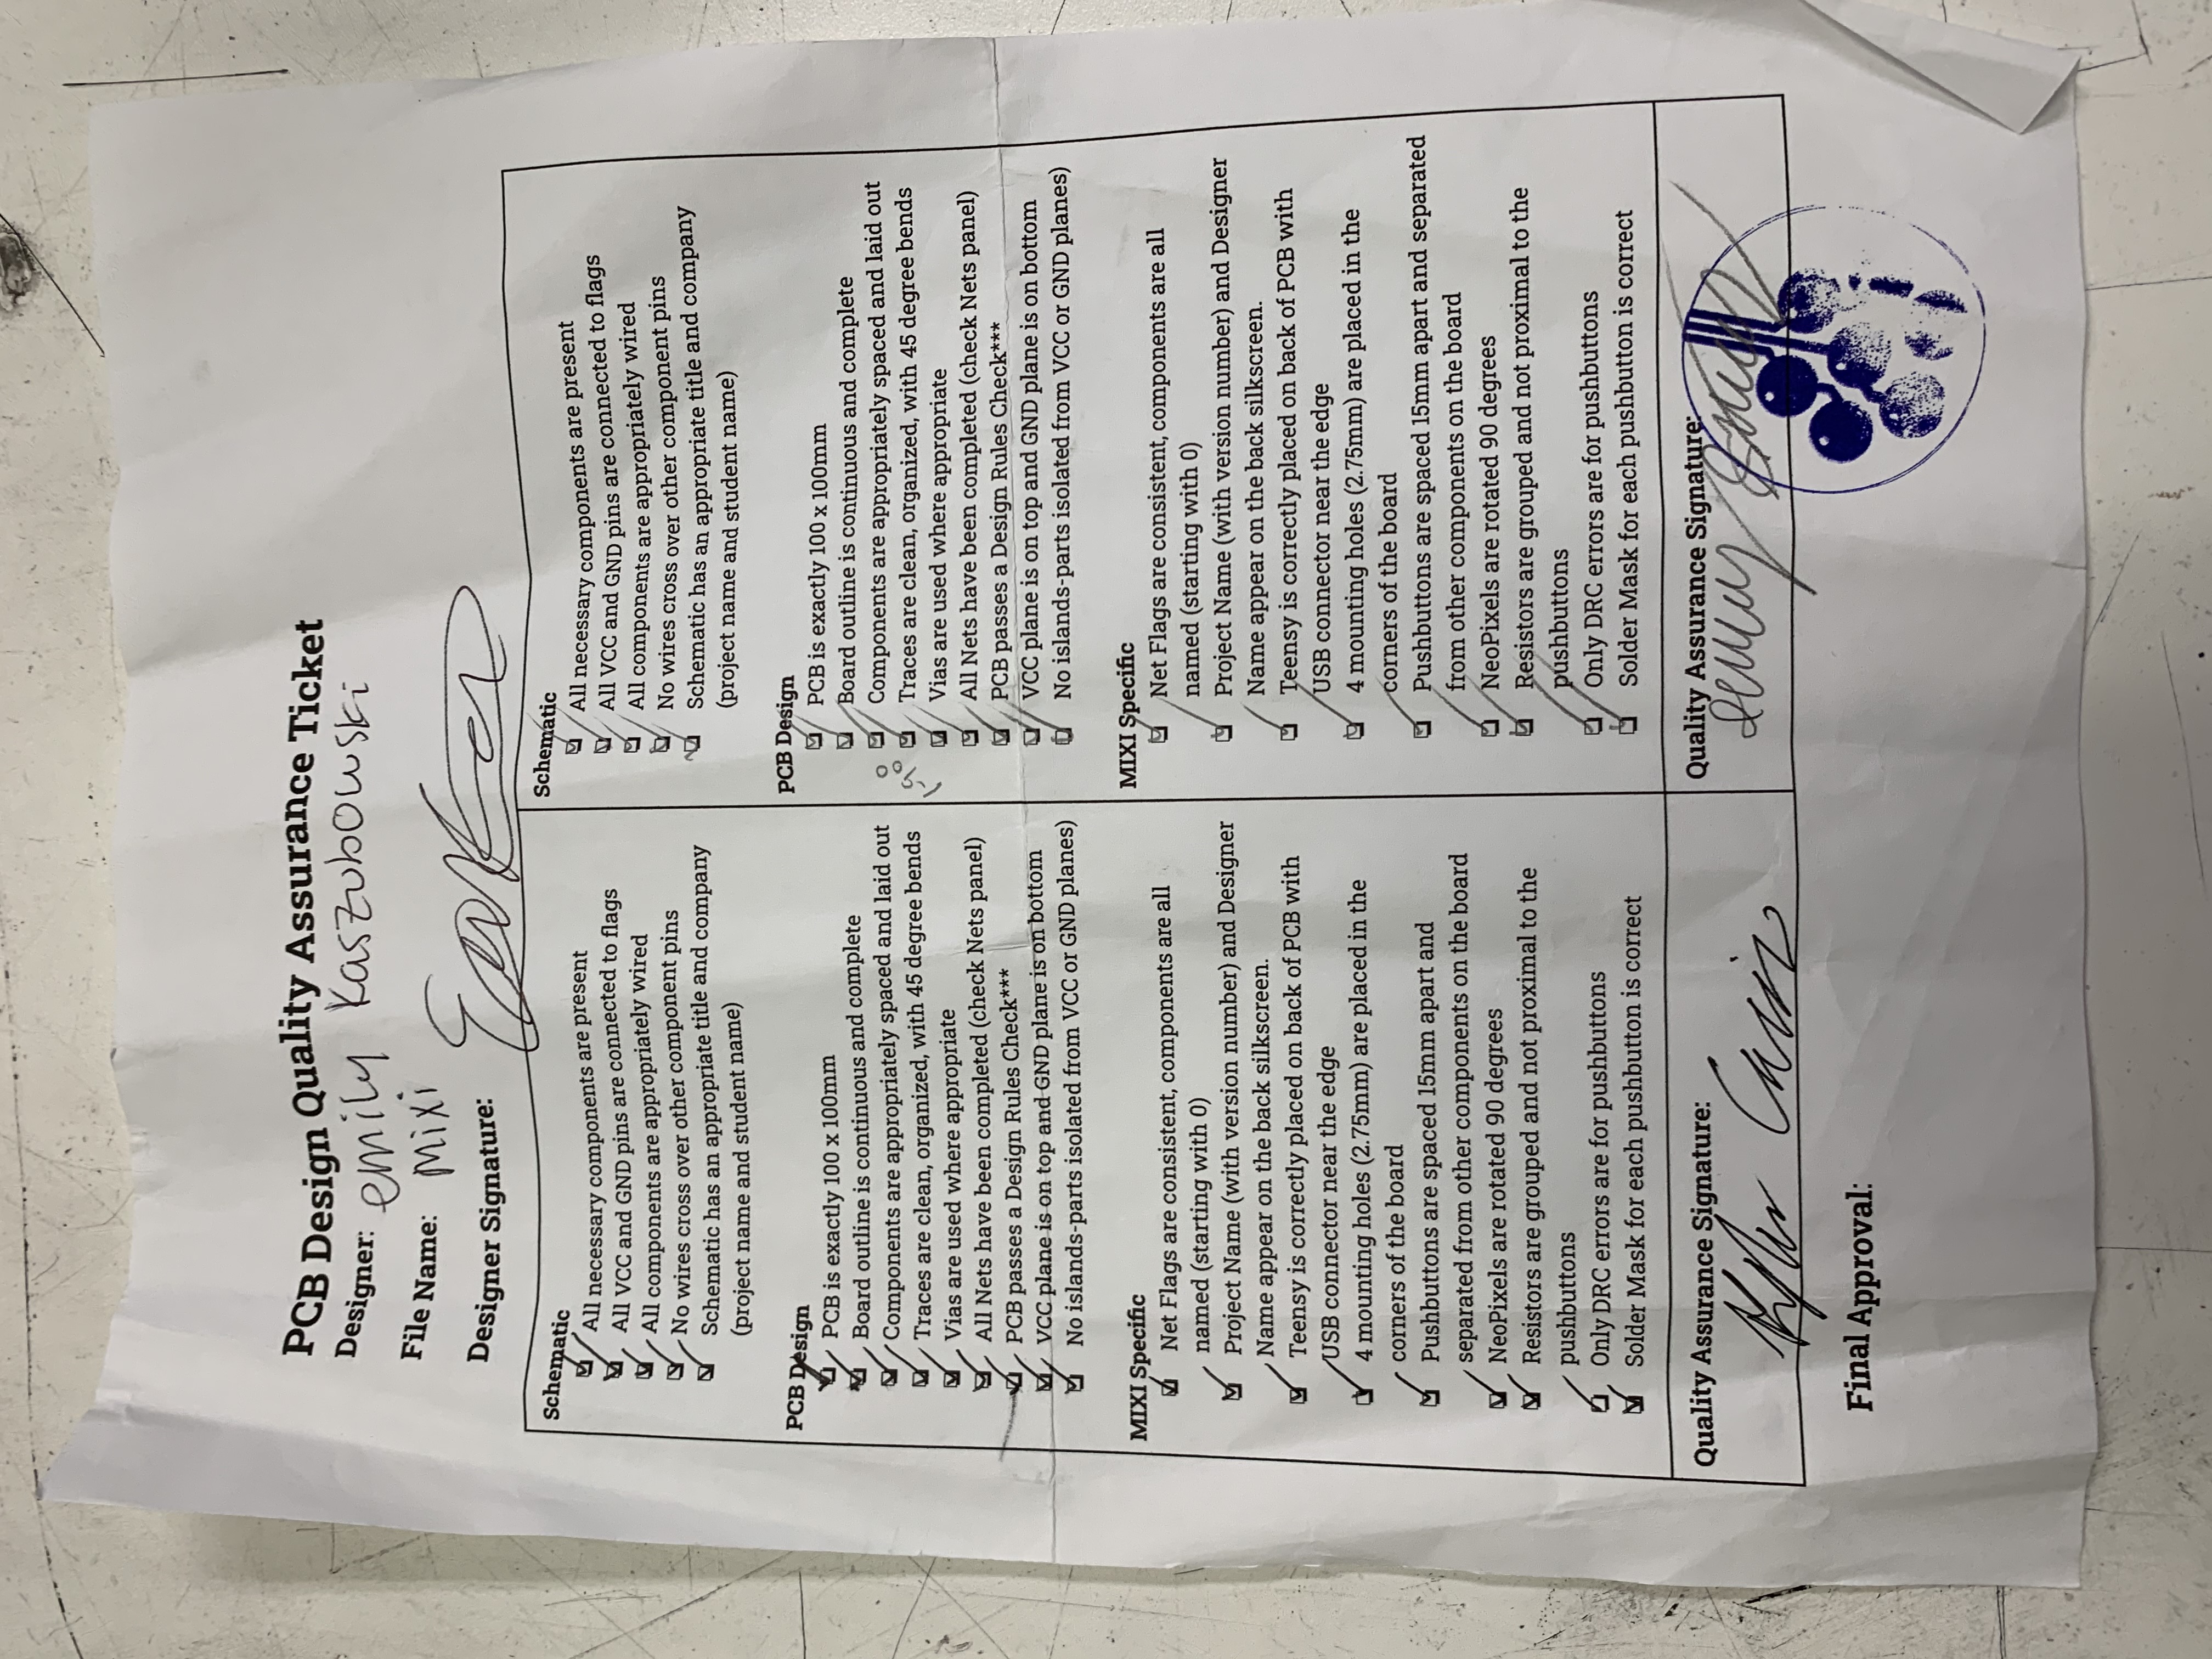 PCB Design Quality Assurance Ticket
Designer: emily Kaszubowski
File Name: Mixi
Designer Signature:
Schematic
All necessary components are present
All VCC and GND pins are connected to flags
All components are appropriately wired
No wires cross over other component pins
Schematic has an appropriate title and company
(project name and student name)
PCB Design
PCB is exactly 100 x 100mm
Board outline is continuous and complete
Components are appropriately spaced and laid out
Traces are clean, organized, with 45 degree bends
Vias are used where appropriate
All Nets have been completed (check Nets panel)
PCB passes a Design Rules Check***
VCC plane is on top and GND plane is on bottom
No islands-parts isolated from VCC or GND planes)
MIXI Specific
Net Flags are consistent, components are all
named (starting with 0)
Project Name (with version number) and Designer
Name appear on the back silkscreen.
Teensy is correctly placed on back of PCB with
USB connector near the edge
4 mounting holes (2.75mm) are placed in the
corners of the board
Pushbuttons are spaced 15mm apart and
separated from other components on the board
NeoPixels are rotated 90 degrees
Resistors are grouped and not proximal to the
pushbuttons
Only DRC errors are for pushbuttons
Solder Mask for each pushbutton is correct
Quality Assurance Signature:
Schematic
All necessary components are present
All VCC and GND pins are connected to flags
All components are appropriately wired
No wires cross over other component pins
Schematic has an appropriate title and company
(project name and student name)
PCB Design
PCB is exactly 100 x 100mm
Board outline is continuous and complete
Components are appropriately spaced and laid out
Traces are clean, organized, with 45 degree bends
Vias are used where appropriate
All Nets have been completed (check Nets panel)
PCB passes a Design Rules Check***
VCC plane is on top and GND plane is on bottom
No islands-parts isolated from VCC or GND planes)
MIXI Specific
Net Flags are consistent, components are all
named (starting with 0)
Project Name (with version number) and Designer
Name appear on the back silkscreen.
Teensy is correctly placed on back of PCB with
USB connector near the edge
4 mounting holes (2.75mm) are placed in the
corners of the board
Pushbuttons are spaced 15mm apart and separated
from other components on the board
NeoPixels are rotated 90 degrees
Resistors are grouped and not proximal to the
pushbuttons
Only DRC errors are for pushbuttons
Solder Mask for each pushbutton is correct
Quality Assurance Signature:
Final Approval: